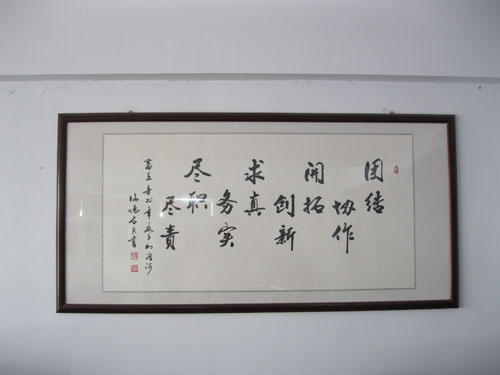 团结
协作
开拓
创新
求真
务实
尽职
尽责